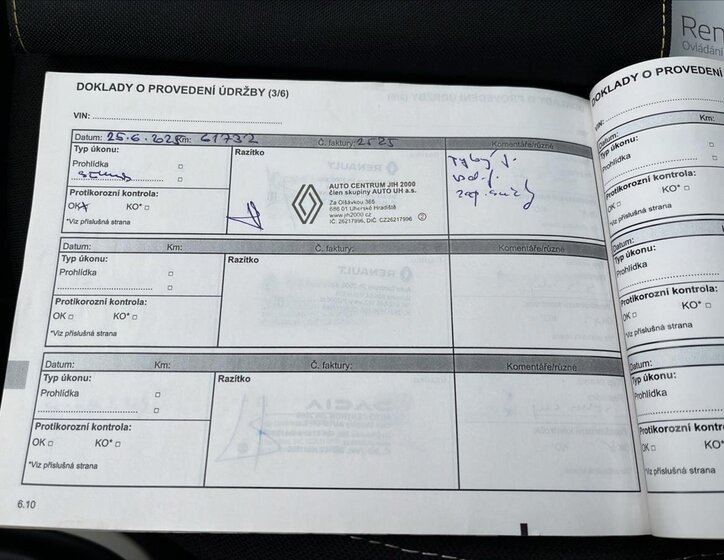 Ren
Ovládání
DOKLADY O PROVEDENÍ ÚDRŽBY (3/6)
VIN:
Datum: 25.6. Km: 61732 Č. faktury: 2525 Komentáře/různé
Typ úkonu:
Prohlídka
Protikorozní kontrola:
OK KO*
*Viz příslušná strana
Razítko
AUTO CENTRUM JIH 2000
člen skupiny AUTO UH a.s.
Za Olšávkou 365
686 01 Uherské Hradiště
www.jih2000.cz
IČ: 26217996, DIČ: CZ26217996 2
Datum: Km: Č. faktury: Komentáře/různé
Typ úkonu:
Prohlídka
Protikorozní kontrola:
OK KO*
*Viz příslušná strana
Razítko
Datum: Km: Č. faktury: Komentáře/různé
Typ úkonu:
Prohlídka
Protikorozní kontrola:
OK KO*
*Viz příslušná strana
Razítko
6.10
DOKLADY O PROVEDENÍ
VIN:
Datum: Km:
Typ úkonu:
Prohlídka
Protikorozní kontrola:
OK KO*
*Viz příslušná strana
Datum: Km:
Typ úkonu:
Prohlídka
Protikorozní kontrola:
OK KO*
*Viz příslušná strana
Datum:
Typ úkonu:
Prohlídka
Protikorozní kontro
OK KO*
*Viz příslušná strana